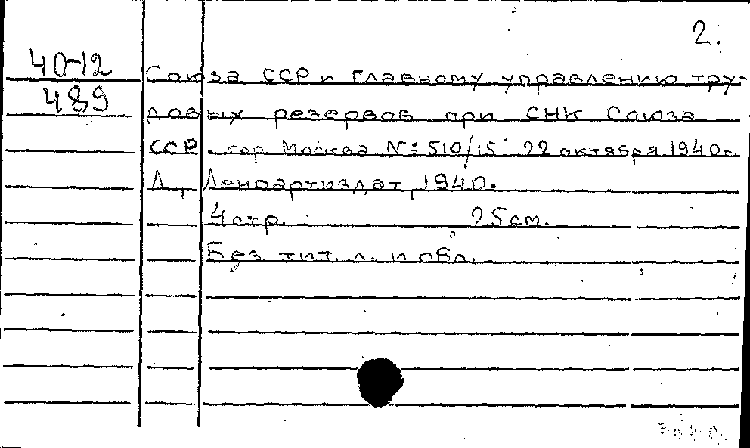 2.
40-12
489
Союза ССР и Главному управлению тру-
довых резервов при СНК Союза
ССР. гор. Москва № 510/15 22 октября 1940г.
Л., Леноартиздат, 1940.
4 стр. 25 см.
Без тит. л. и обл.